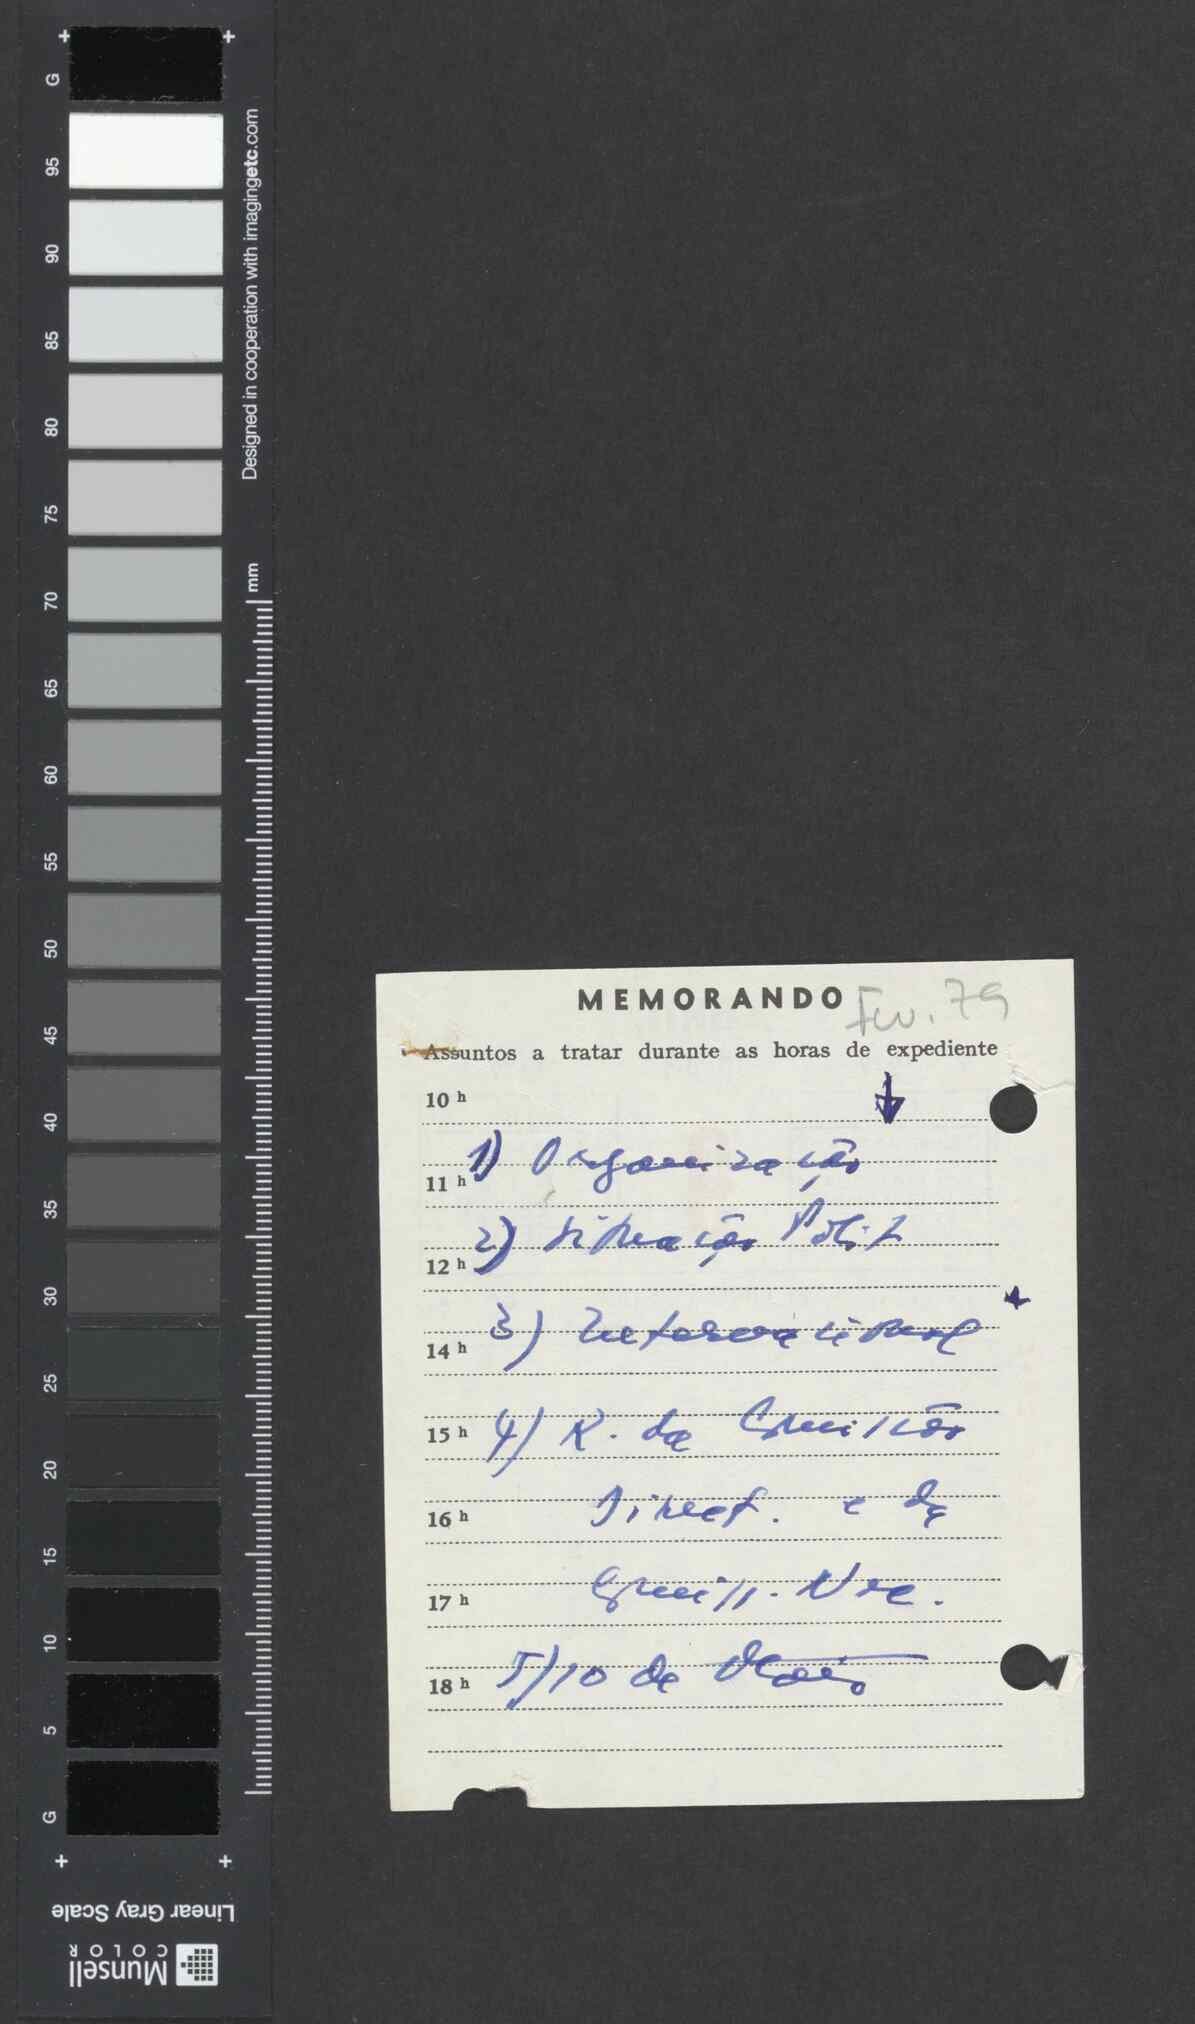 G
95
90
85
80
75
70
65
60
55
50
45
40
35
30
25
20
15
10
5
G
Designed in cooperation with imagingetc.com
mm
Linear Gray Scale
Munsell
COLOR
MEMORANDO Fev. 79
Assuntos a tratar durante as horas de expediente
10 h
1) Organização
11 h
2) Situação Polit
12 h
3) Internacional
14 h
4) R. da Comissão
15 h
Direct. e da
16 h
Comiss. Nac.
17 h
5) 10 de Maio
18 h